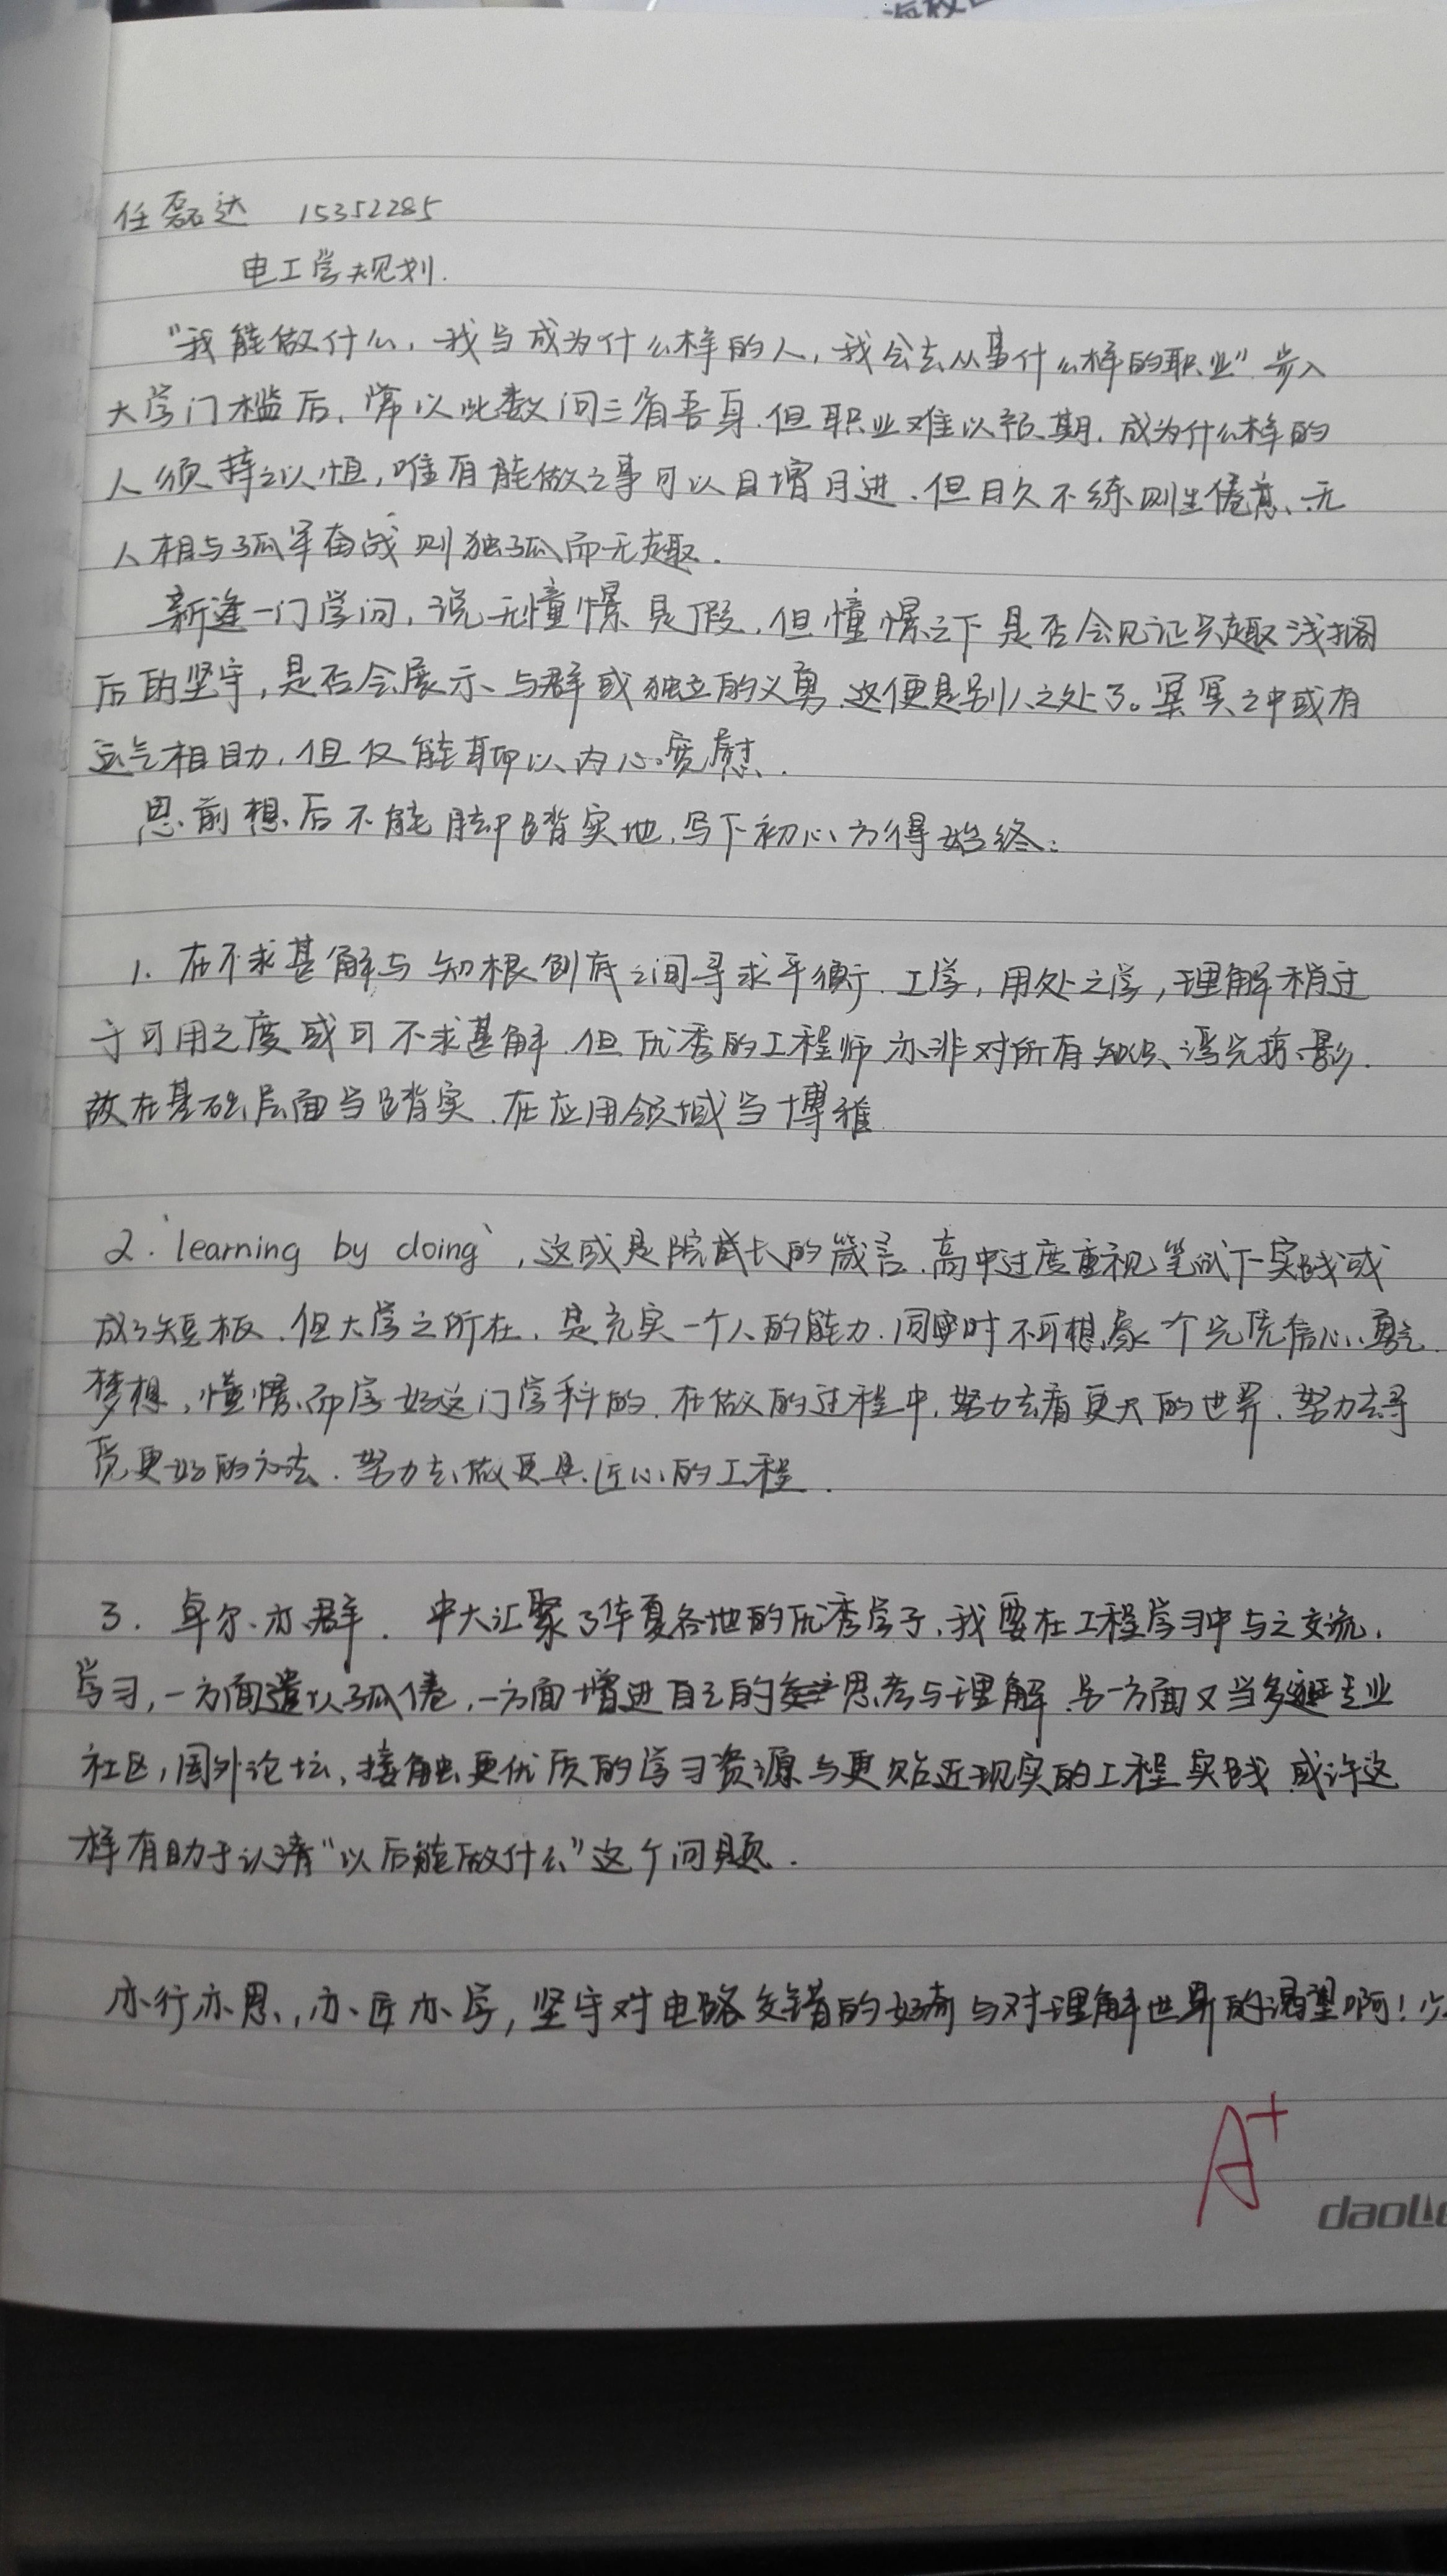 海校区
任磊达 15352285
电工学规划.
"我能做什么，我当成为什么样的人，我会去从事什么样的职业"步入
大学门槛后，常以此数问三省吾身.但职业难以预期，成为什么样的
人须持之以恒，唯有能做之事可以日增月进.但日久不练则生倦意、无
人相与孤军奋战则独孤而无趣.
新逢一门学问，说无憧憬是假，但憧憬之下是否会见证兴趣浅搁
后的坚守，是否会展示、与群或独立的义勇.这便是别人之处了。冥冥之中或有
运气相助，但仅能聊以内心宽慰.
思前想后不能脚踏实地，写下初心方得始终:
1. 在不求甚解与知根刨底之间寻求平衡.工学，用处之学，理解稍过
于可用之度或可不求甚解.但优秀的工程师亦非对所有知识、浮光掠影.
故在基础层面当踏实.在应用领域当博雅.
2.'learning by doing'，这或是院成长的箴言.高中过度重视笔试下实践或
成了短板.但大学之所在，是充实一个人的能力.同时不可想象一个完凭信心、勇气
梦想，憧憬而学好这门学科的.在做的过程中，努力去看更大的世界.努力去寻
觅更好的方法.努力去做更具匠心的工程.
3. 卓尔亦群. 中大汇聚了华夏各地的优秀学子，我要在工程学习中与之交流，
学习，一方面遣以孤倦，一方面增进自己的思考与理解.另一方面又当多逛专业
社区，国外论坛，接触更优质的学习资源与更贴近现实的工程实践.或许这
样有助于认清"以后能做什么"这个问题.
亦行亦思，亦匠亦学，坚守对电路交错的好奇与对理解世界的渴望啊！少
A+